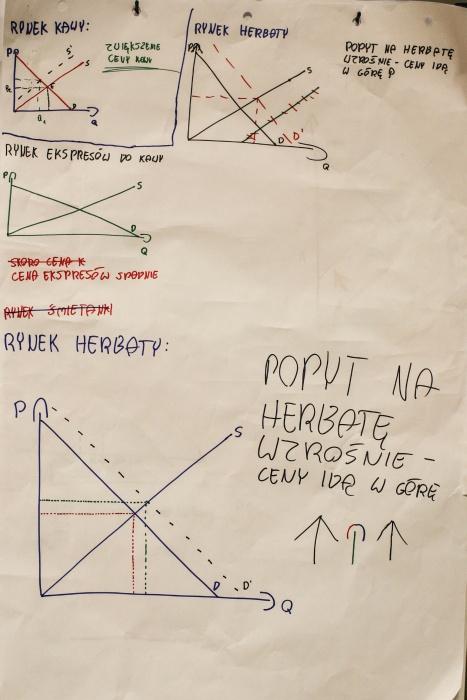 RYNEK KAWY:
P
S'
S
D
Q
ZWIĘKSZENIE
CENY KAWY
RYNEK HERBATY
P
S
D
D'
Q
POPYT NA HERBATĘ
WZROŚNIE - CENY IDĄ
W GÓRĘ
RYNEK EKSPRESÓW DO KAWY
P
S
D
Q
SKORO CENA K
CENA EKSPRESÓW SPADNIE
RYNEK ŚMIETANKI
RYNEK HERBATY:
P
S
D
D'
Q
POPYT NA
HERBATĘ
WZROŚNIE -
CENY IDĄ W GÓRĘ